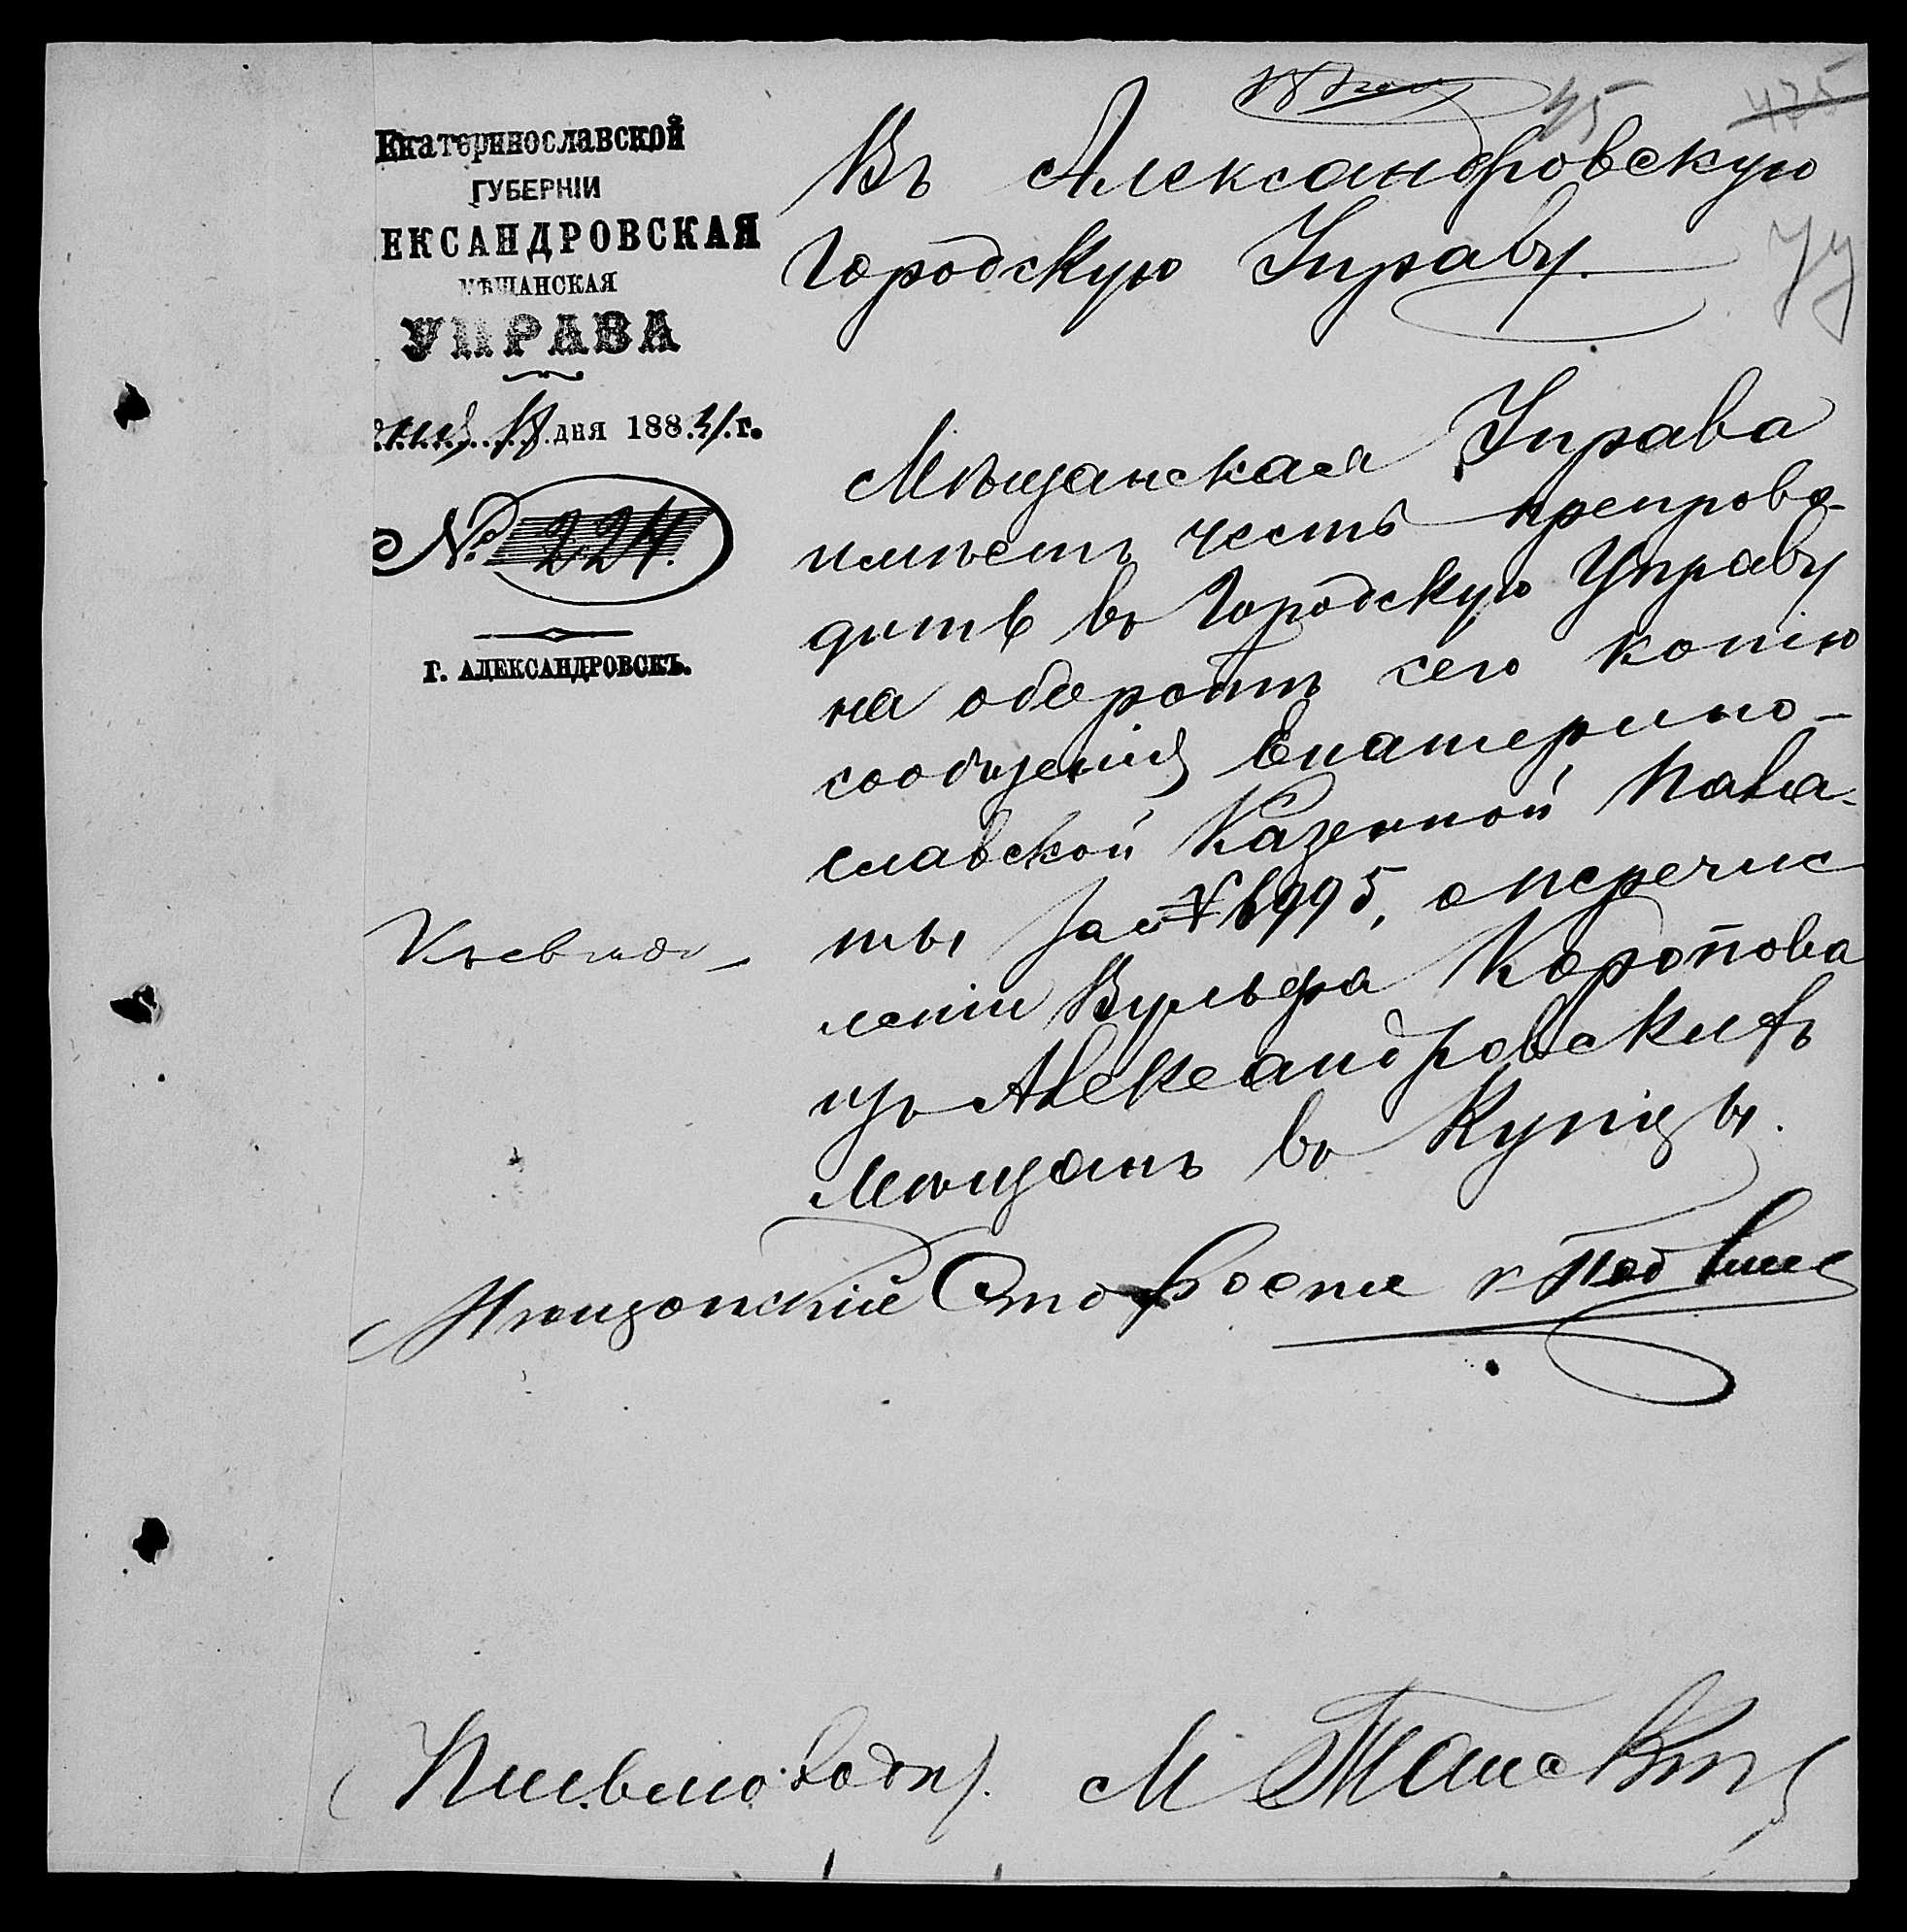 Екатеринославской
ГУБЕРНІИ
ЕКСАНДРОВСКАЯ
МѢЩАНСКАЯ
УПРАВА
18 дня 188 г.
№ 224.
г. АЛЕКСАНДРОВСКЪ.
45
475
Въ Александровскую
Городскую Управу.
Мѣщанская Управа
имѣетъ честь препрово-
дить въ Городскую Управу
на оборотѣ сего копію
сообщенія Екатерино-
славской Казенной Пала-
ты за № 6995, о перечис
леніи Вульфа Коропова
изъ Александровскихъ
мѣщанъ въ Купцы.
Къ свѣд
Мѣщанскій Староста
Письмоводит. М